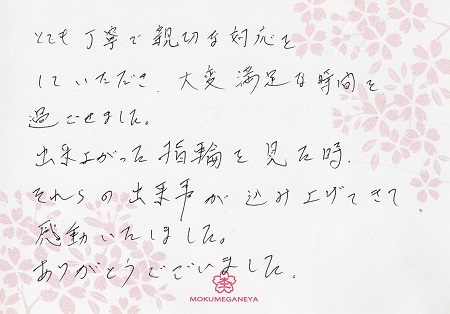 とても丁寧で親切な対応を
していただき、大変満足な時間を
過ごせました。
出来上がった指輪を見た時、
それらの出来事が込み上げてきて、
感動いたしました。
ありがとうございました。
MOKUMEGANEYA